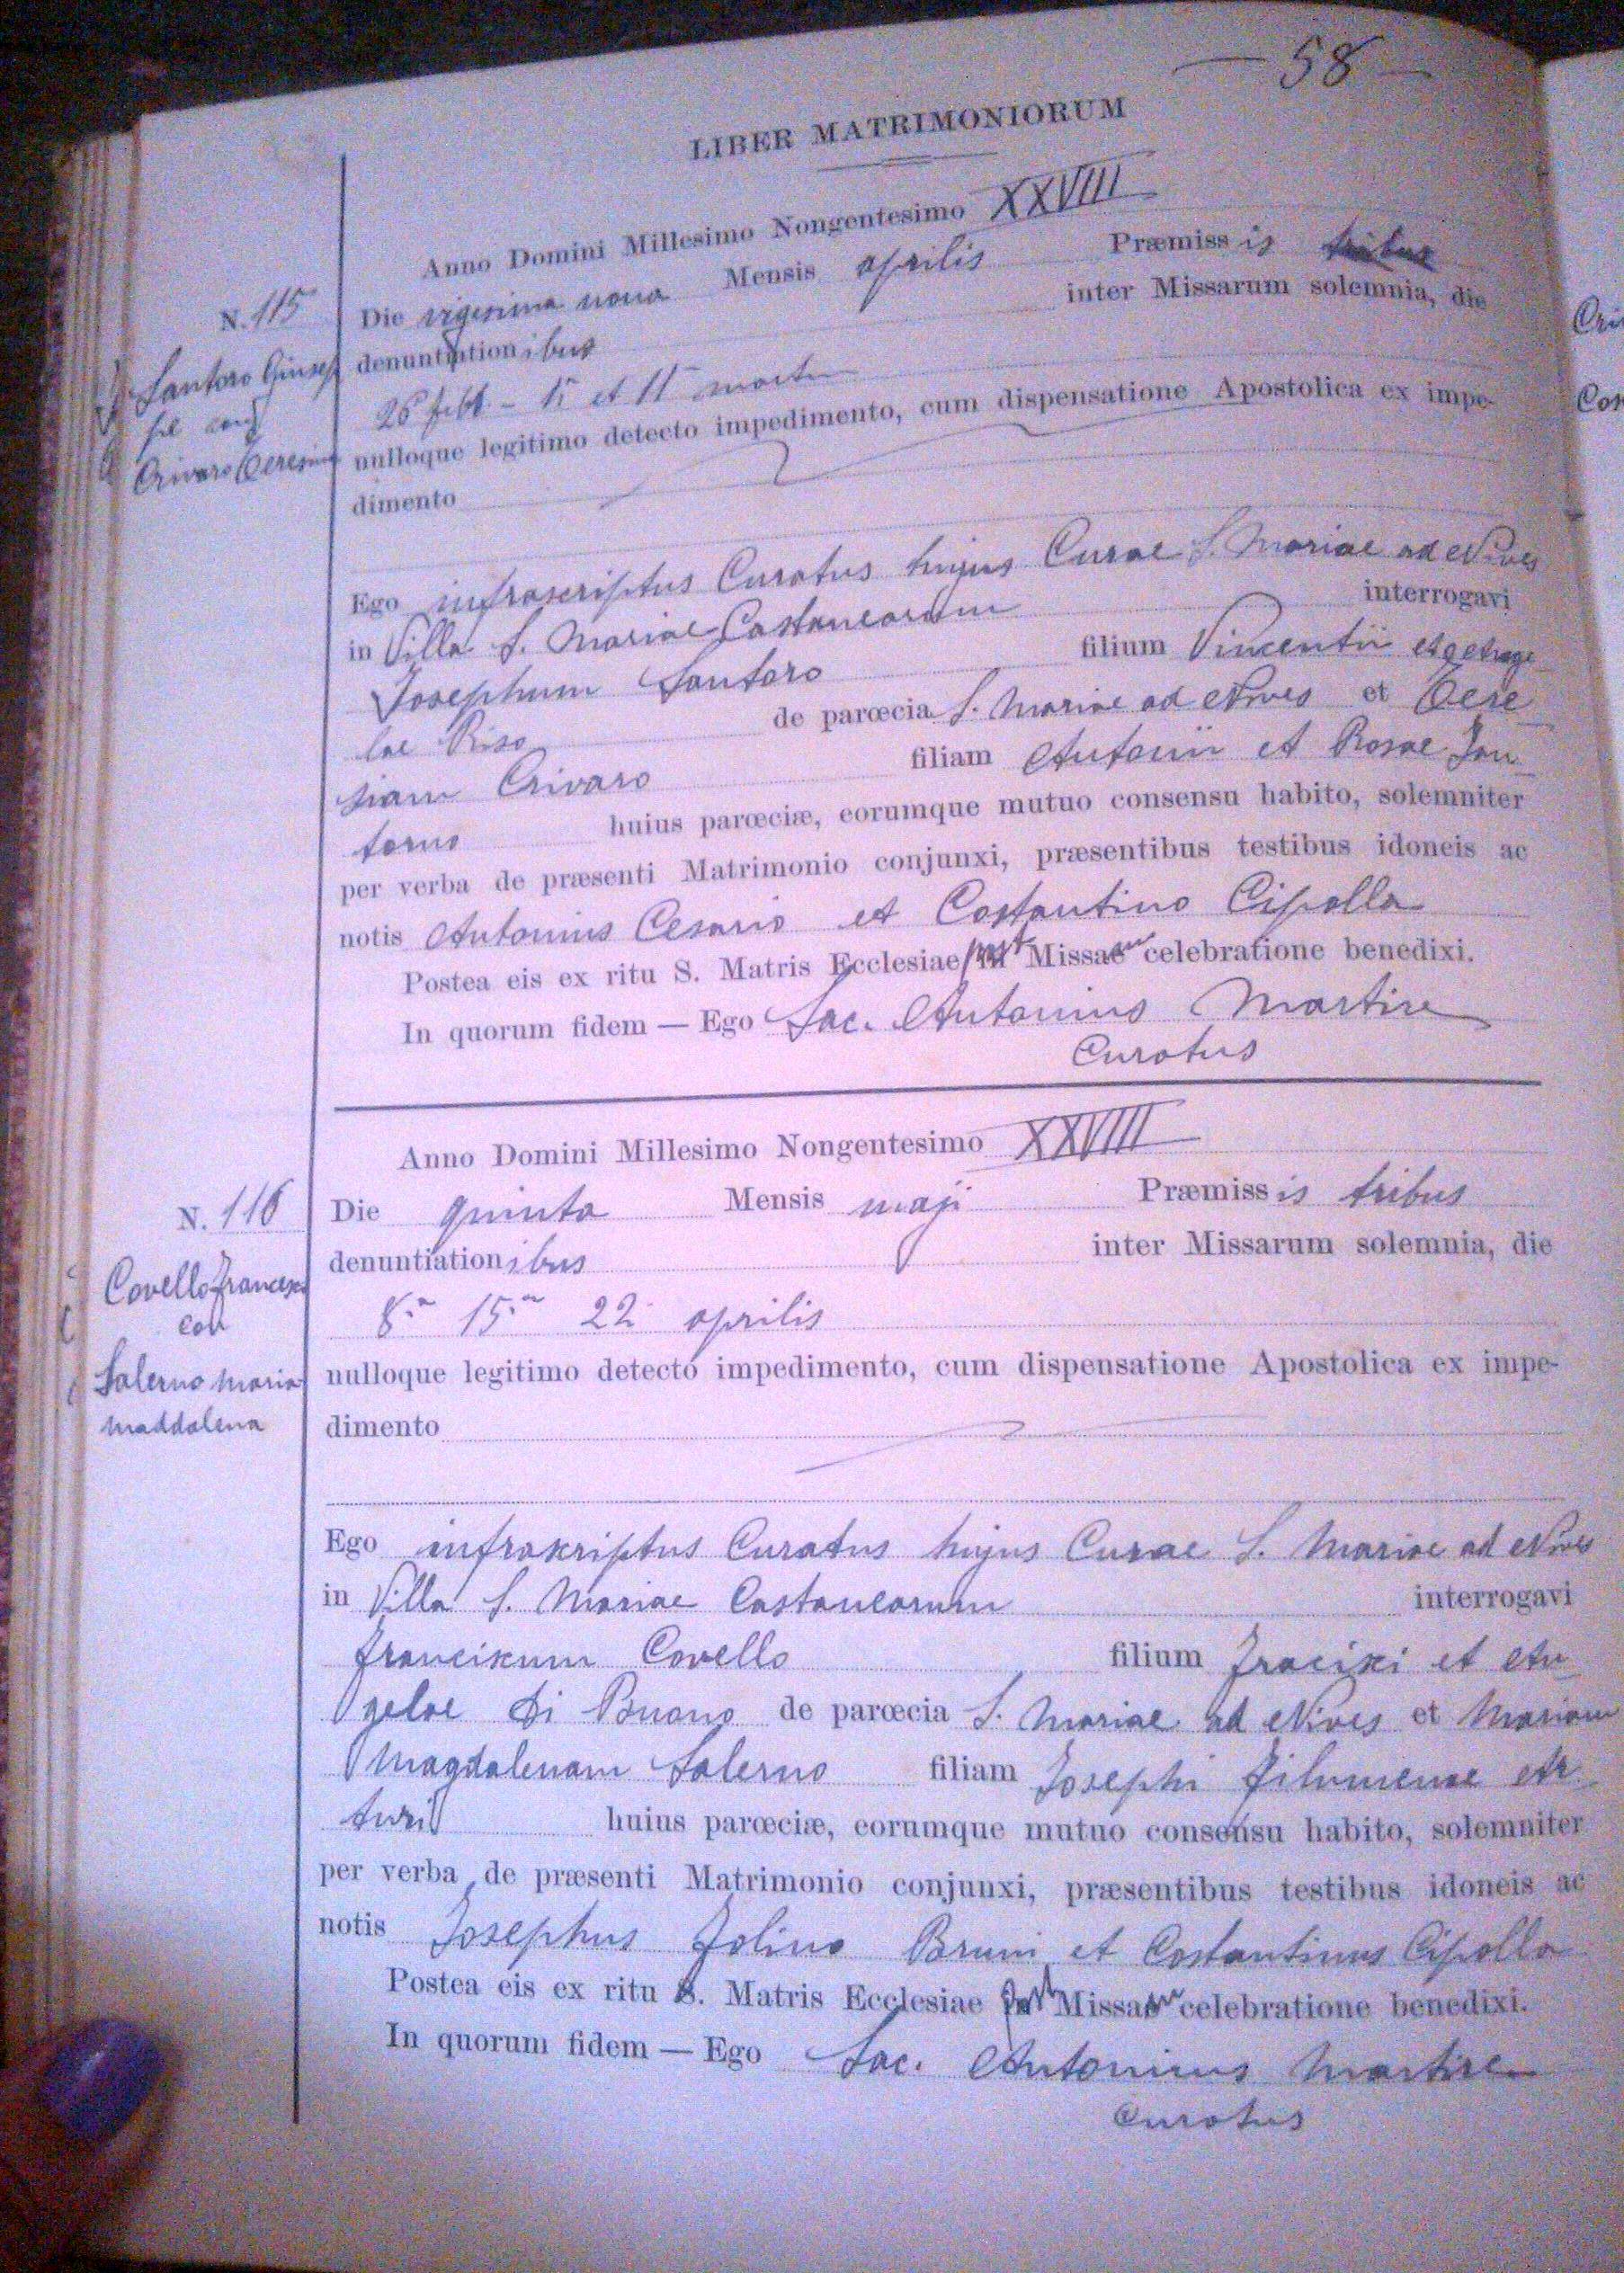 — 58 —
LIBER MATRIMONIORUM
Anno Domini Millesimo Nongentesimo XXVIII
N. 115
Die vigesima nona Mensis aprilis Præmissis tribus
denuntiationibus inter Missarum solemnia, die
Santoro Giusep
26 febb. - 1i et 11
nulloque legitimo detecto impedimento, cum dispensatione Apostolica ex impe-
Crivaro Teresina
dimento
Ego infrascriptus Curatus hujus Curae S. Mariae ad Nives
in Villa S. Mariae Castanearum interrogavi
Josephum Santoro filium Vincentii et
lae Riso de parœcia S. Mariae ad Nives et Tere
siam Crivaro filiam Antonii et Rosae San
torno huius parœciæ, eorumque mutuo consensu habito, solemniter
per verba de præsenti Matrimonio conjunxi, præsentibus testibus idoneis ac
notis Antonius Cesario et Costantino Cipolla
Postea eis ex ritu S. Matris Ecclesiae post Missam celebratione benedixi.
In quorum fidem — Ego Sac. Antonius Martire
Curatus
Anno Domini Millesimo Nongentesimo XXVIII
N. 116
Die quinta Mensis maji Præmissis tribus
denuntiationibus inter Missarum solemnia, die
Covello Francesco
con
8.a 15.a 22 aprilis
Salerno Maria
nulloque legitimo detecto impedimento, cum dispensatione Apostolica ex impe-
Maddalena
dimento
Ego infrakriptus Curatus hujus Curae S. Mariae ad Nives
in Villa S. Mariae Castanearum interrogavi
Francikum Covello filium Fraciki et An
gelae Di Buono de parœcia S. Mariae ad Nives et Mariam
Magdalenam Salerno filiam Josephi Filumenae Ar
turi huius parœciæ, eorumque mutuo consensu habito, solemniter
per verba de præsenti Matrimonio conjunxi, præsentibus testibus idoneis ac
notis Josephus Folino Bruni et Costantinus Cipolla
Postea eis ex ritu S. Matris Ecclesiae post Missam celebratione benedixi.
In quorum fidem — Ego Sac. Antonius Martire
Curatus